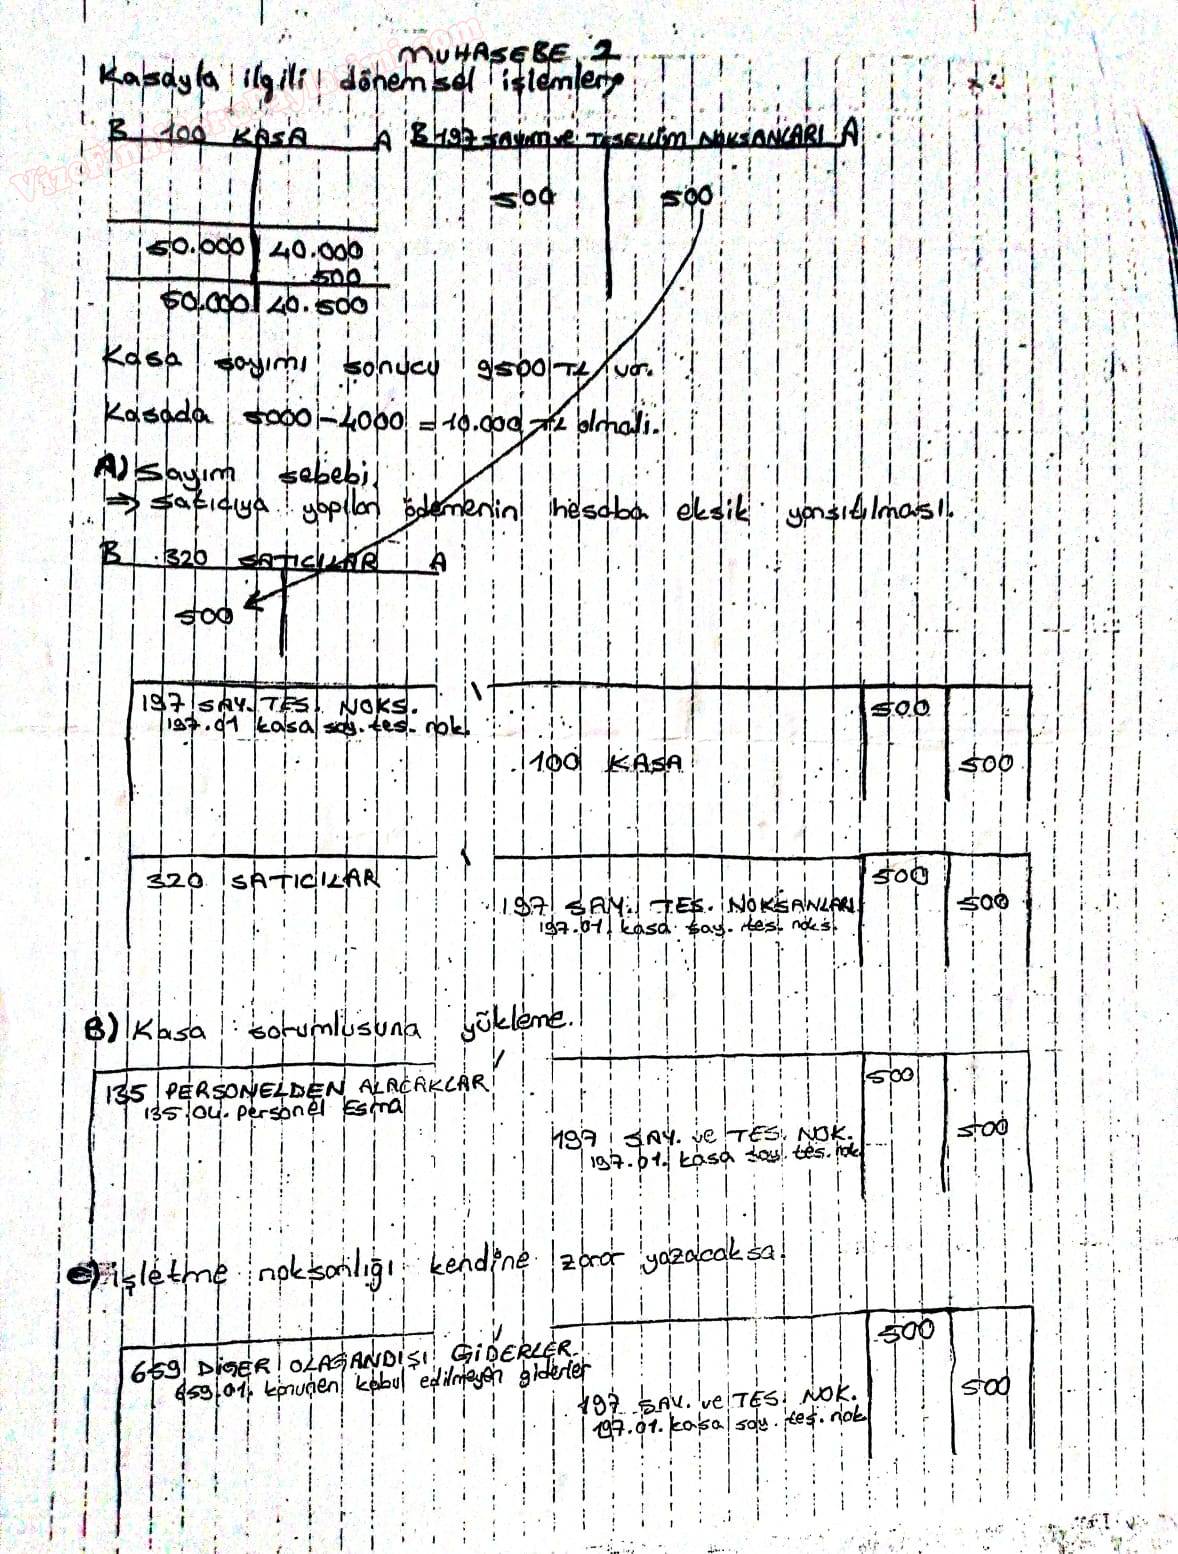 MUHASEBE 2
Kasayla ilgili dönemsel işlemler
B 100 KASA A B 197 SAYIM ve TESELLÜM NOKSANLARI A
500 500
50.000 40.000
500
50.000 40.500
Kasa sayımı sonucu 9500 TL var.
Kasada 5000-4000 = 10.000 TL olmalı.
A) Sayım sebebi;
⇒ Satıcıya yapılan ödemenin hesaba eksik yansıtılması.
B 320 SATICILAR A
500
197 SAY. TES. NOKS. 500
197.01 kasa say. tes. nok.
100 KASA 500
320 SATICILAR 500
197 SAY. TES. NOKSANLARI 500
197.01. kasa say. tes. noks.
B) Kasa sorumlusuna yükleme.
135 PERSONELDEN ALACAKLAR 500
135.04. Personel Esma
197 SAY. ve TES. NOK. 500
197.01. kasa say. tes. nok
C) işletme noksanlığı kendine zarar yazacaksa.
659 DİĞER OLAĞANDIŞI GİDERLER. 500
659.01. kanunen kabul edilmeyen giderler
197 SAY. ve TES. NOK. 500
197.01. kasa say. tes. nok